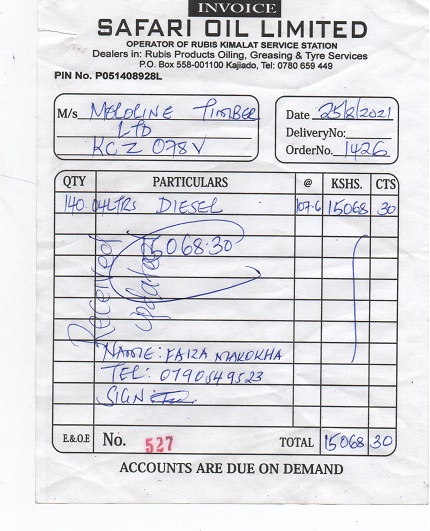 INVOICE
SAFARI OIL LIMITED
OPERATOR OF RUBIS KIMALAT SERVICE STATION
Dealers in: Rubis Products Oiling, Greasing & Tyre Services
P.O. Box 558-001100 Kajiado, Tel: 0780 659 449
PIN No. P051408928L
M/s MOLOLINE TIMBER
LTD
KCZ 078V
Date 25/8/2021
DeliveryNo:
OrderNo. 1426
QTY PARTICULARS @ KSHS. CTS
140.04LTRS DIESEL 107.6 15068 30
15068.30
Received
NAME: FAIZA MAKOKHA
TEL: 0790549523
SIGN
E.&O.E No. 527 TOTAL 15068 30
ACCOUNTS ARE DUE ON DEMAND